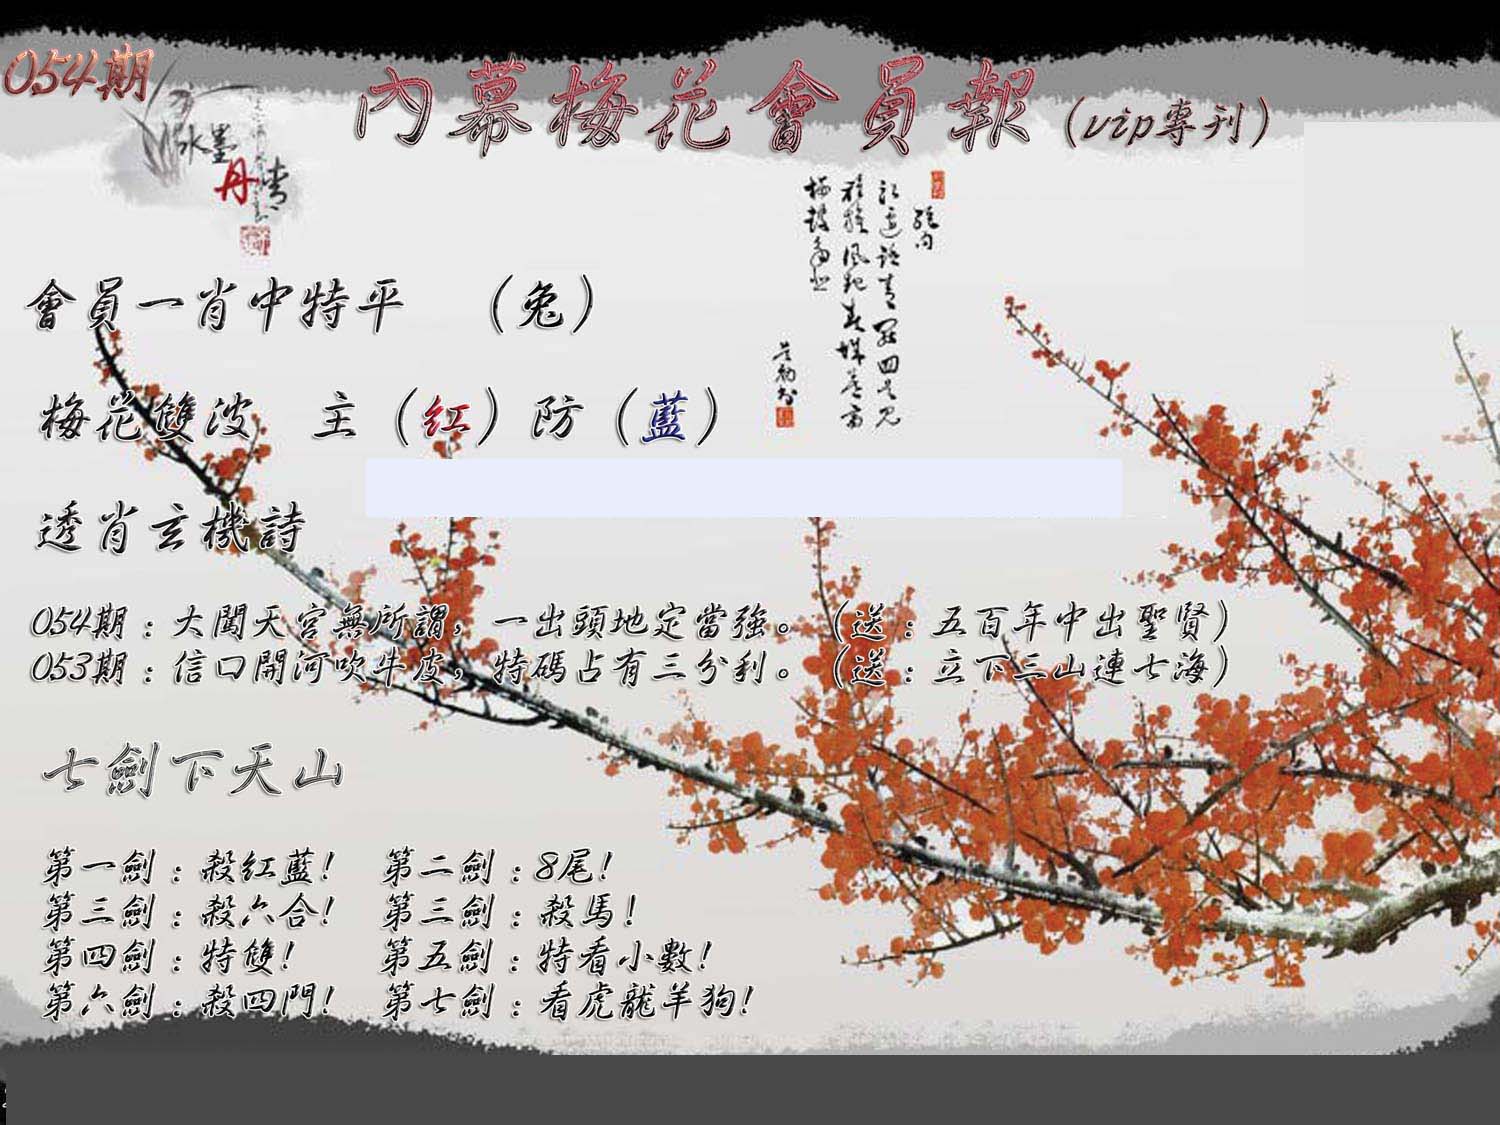 054期
內幕梅花會員報(vip專刊)
水墨
丹青
會員一肖中特平 (兔)
梅花雙波 主(紅)防(藍)
透肖玄機詩
054期:大闖天宮無所謂,一出頭地定當強。(送:五百年中出聖賢)
053期:信口開河吹牛皮,特碼占有三分利。(送:立下三山連七海)
七劍下天山
第一劍:殺紅藍! 第二劍:8尾!
第三劍:殺六合! 第三劍:殺馬!
第四劍:特雙! 第五劍:特看小數!
第六劍:殺四門! 第七劍:看虎龍羊狗!